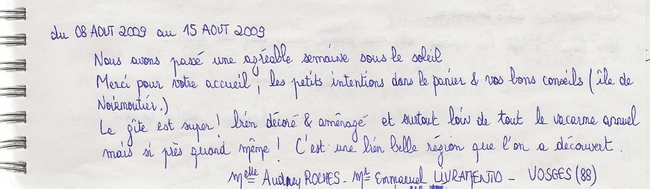 du 08 AOUT 2009 au 15 AOUT 2009
Nous avons passé une agréable semaine sous le soleil
Merci pour votre accueil, les petits intentions dans le panier & vos bons conseils (île de
Noirmoutier.)
Le gîte est super! bien décoré & aménagé et surtout loin de tout le vacarme annuel
mais si près quand même! C'est une bien belle région que l'on a découvert.
Melle Audrey ROCHES - Mr Emmanuel LIVRAMENTO - VOSGES (88)